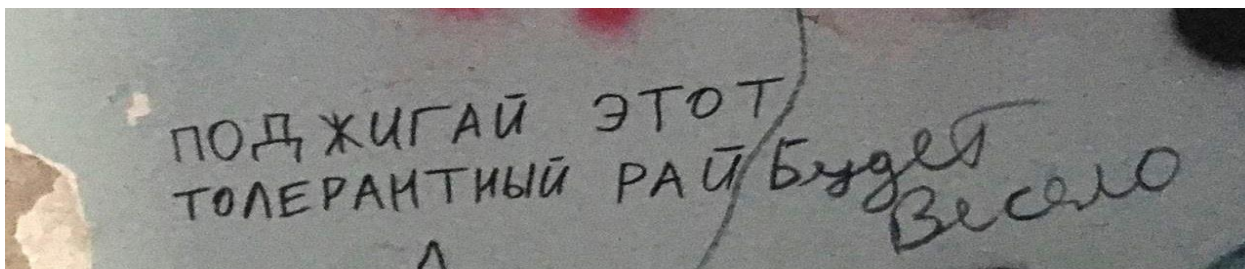 ПОДЖИГАЙ ЭТОТ
ТОЛЕРАНТНЫЙ РАЙ
Будет
Весело